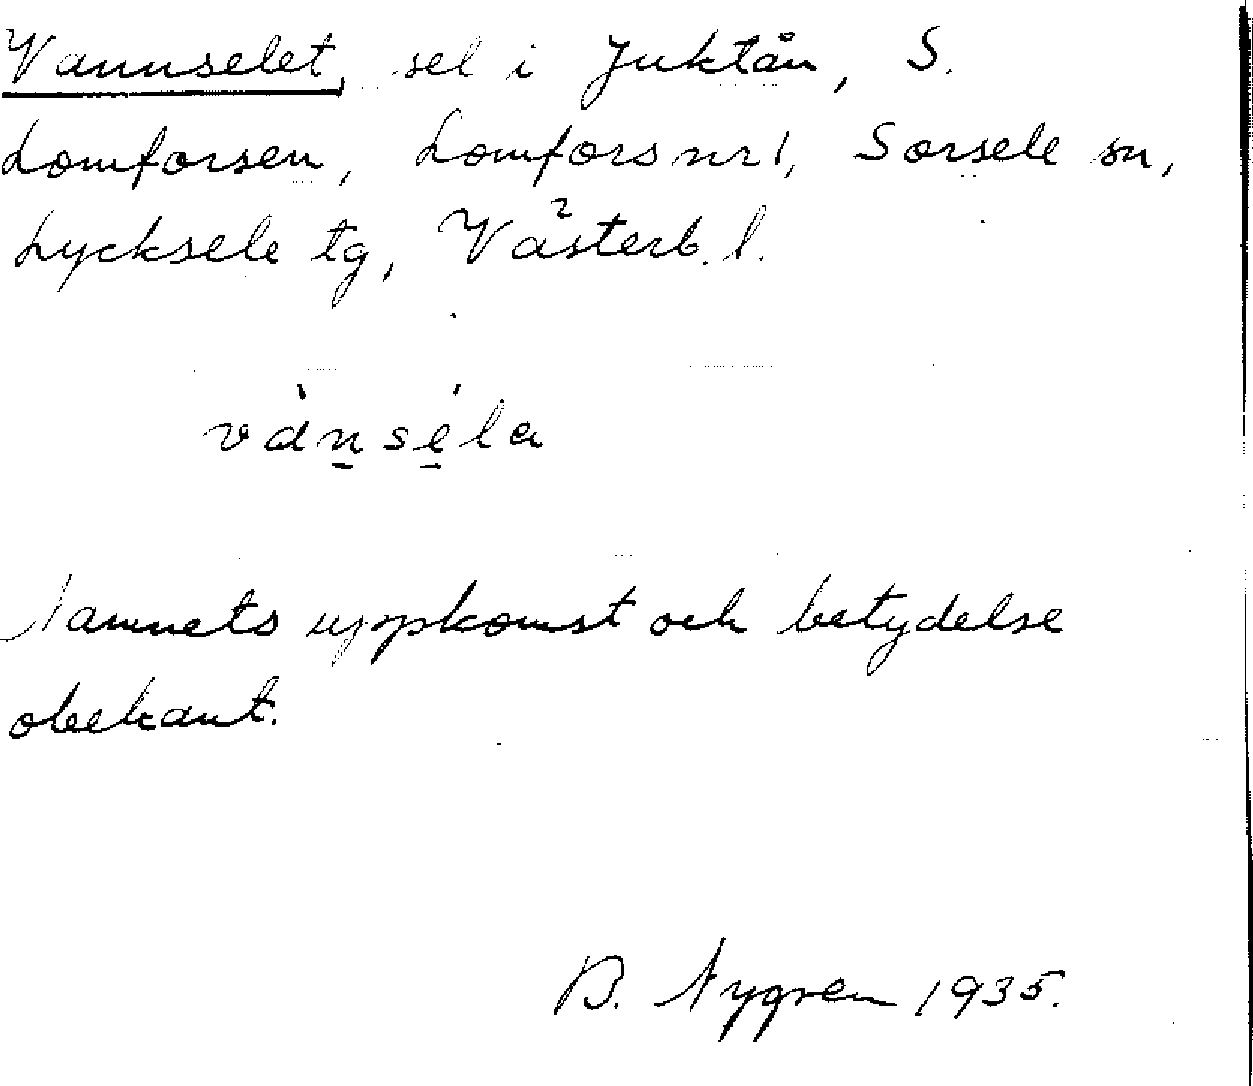 Vannselet, sel i Juktån, S.
Lomforsen, Lomfors nr 1, Sorsele sn,
Lycksele tg, Västerb. l.
vànséla
Namnets uppkomst och betydelse
obekant.
B. Nygren 1935.